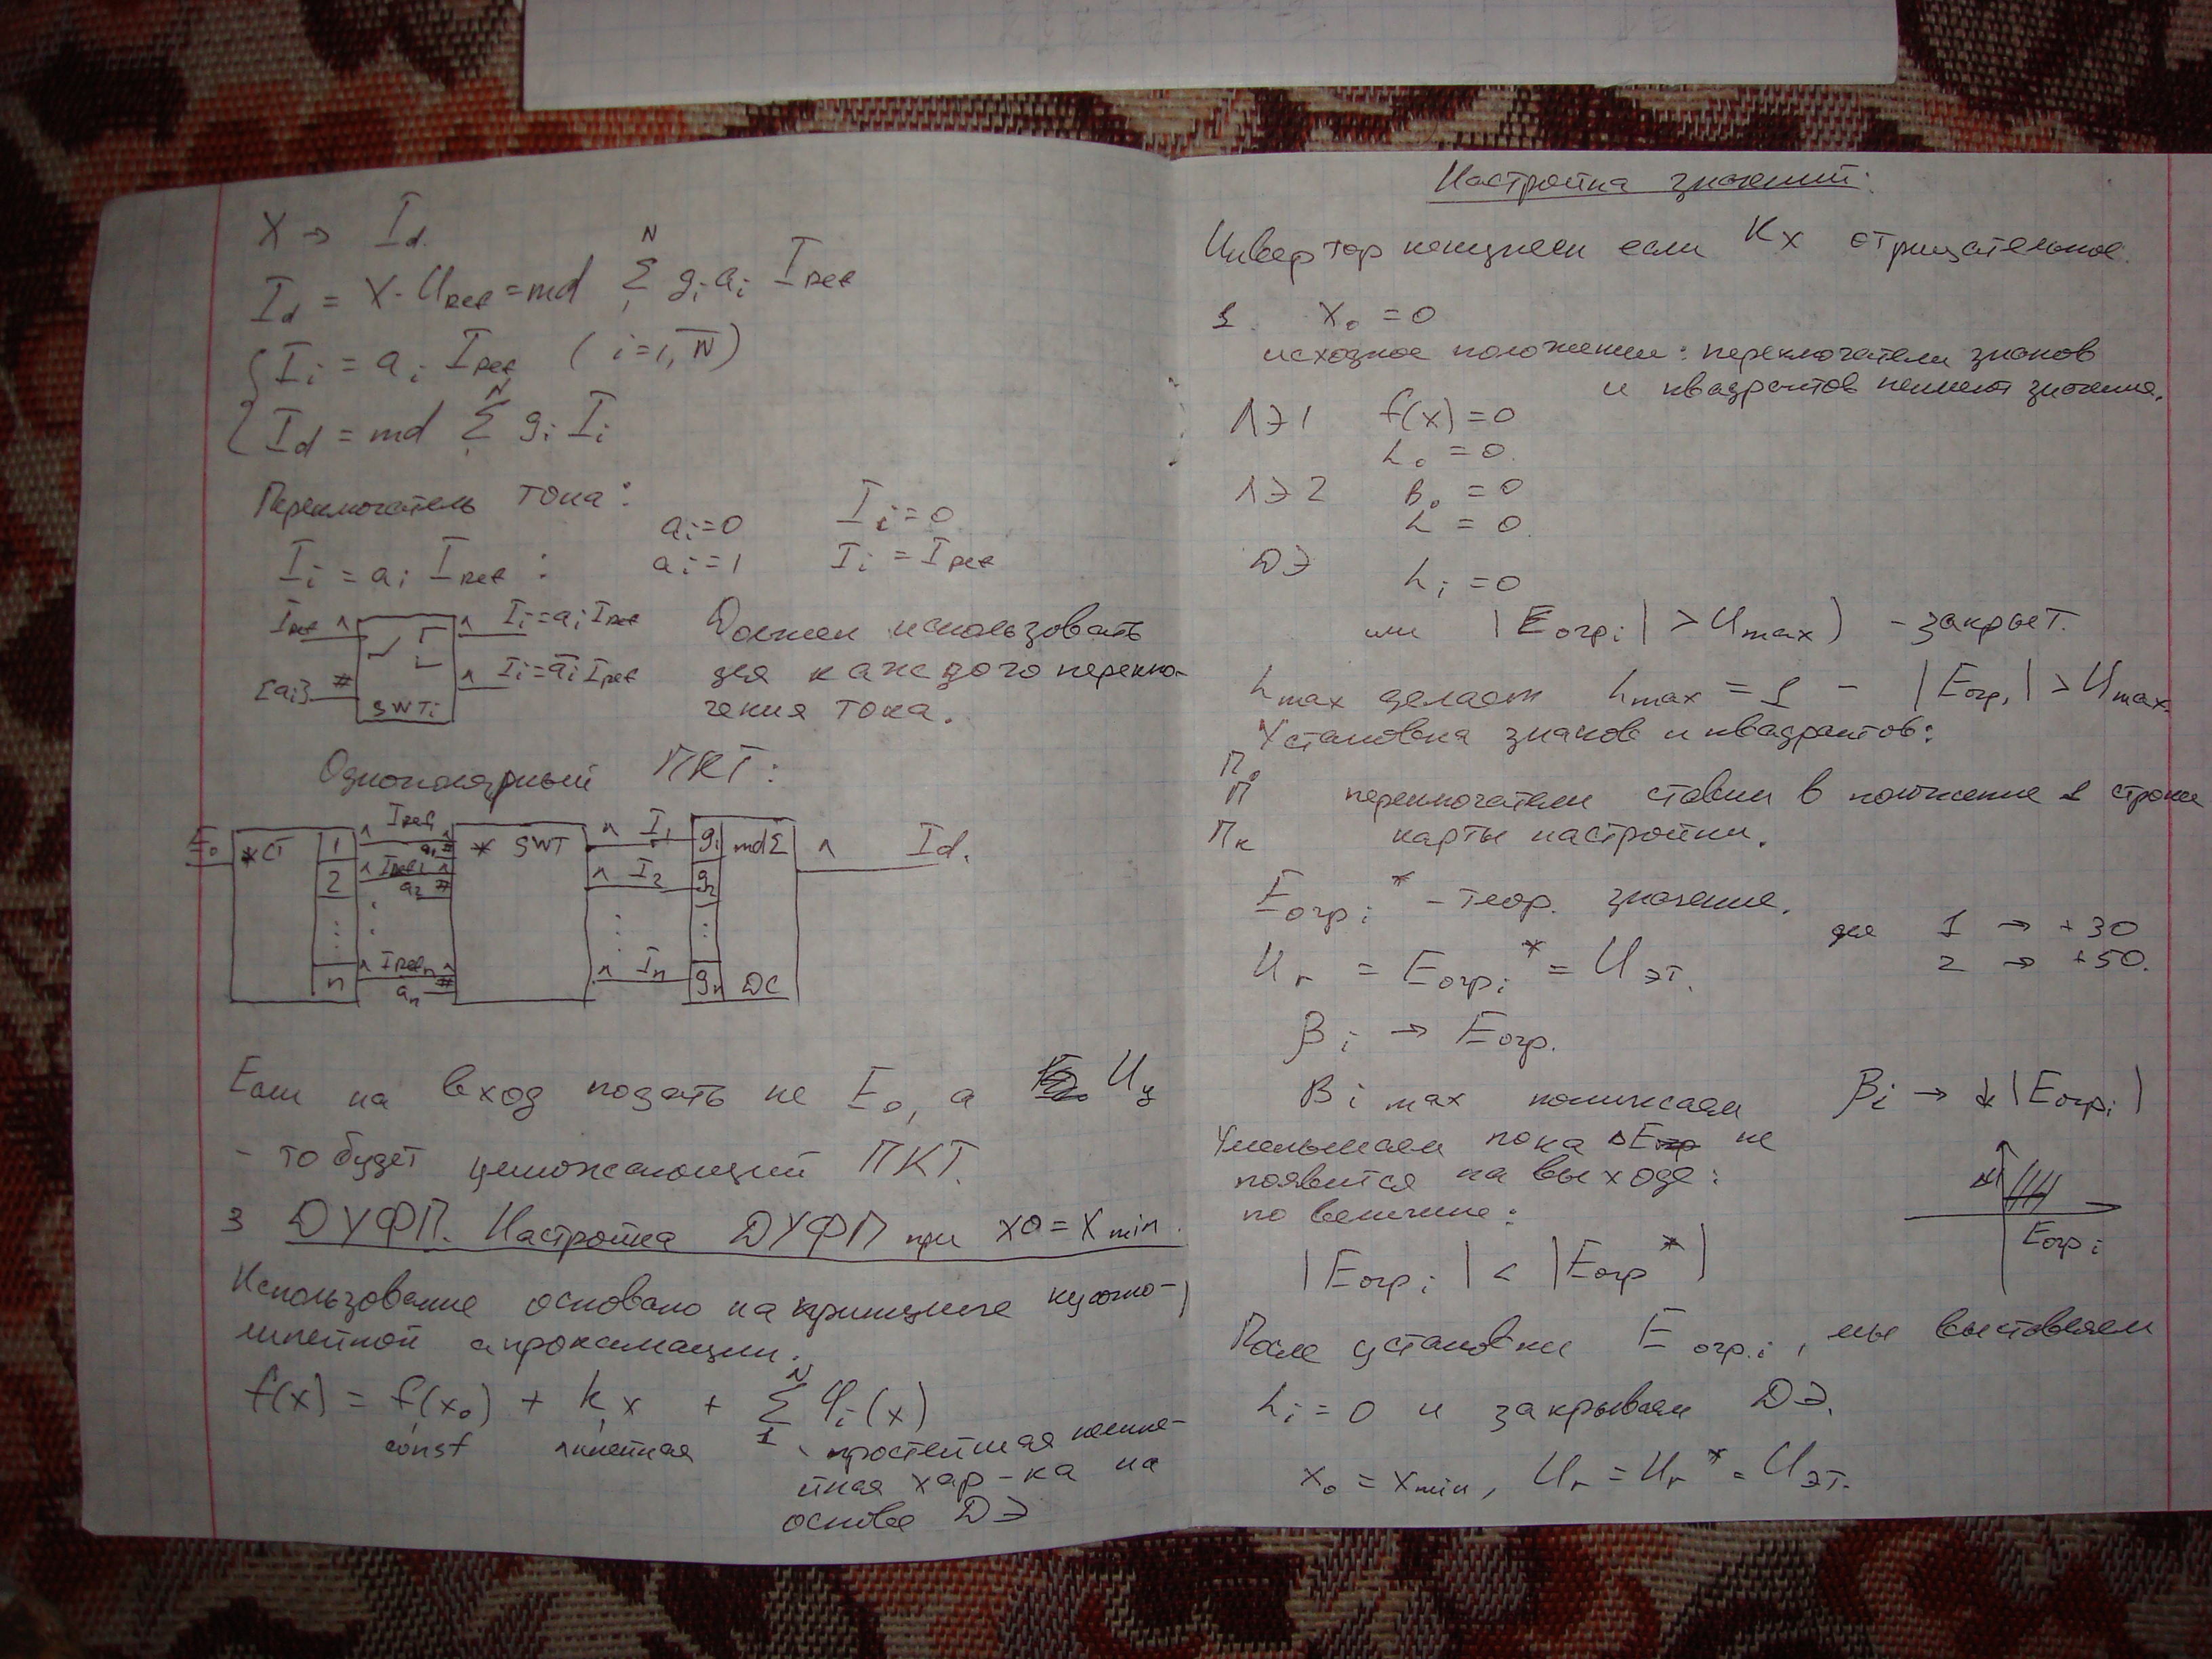 X → I_d.
I_d = X · U_Ref = md Σ^N g_i a_i I_Ref
I_i = a_i I_Ref ( i=1, N̅ )
I_d = md Σ^N g_i I_i
Переключатель тока:
a_i=0 I_i=0
I_i = a_i I_Ref : a_i=1 I_i = I_Ref
I_Ref ^ ^ I_i=a_i I_Ref
[a_i] # ^ I_i=a̅_i I_Ref
SWT_i
Должен использовать
для каждого переклю-
чения тока.
Однополярный ПКТ:
E_0 *СТ 1 ^ I_Ref_1 ^ a_1 # * SWT ^ I_1 g_1 mdΣ ^ I_d.
2 ^ I_Ref_2 ^ a_2 # ^ I_2 g_2
n ^ I_Ref_n ^ a_n # ^ I_n g_n DC
Если на вход подать не E_0, а U_у
- то будет умножающий ПКТ.
3 ДУФП. Настройка ДУФП при x0 = x_min.
Использование основано на принципе кусочно-
линейной апроксимации.
f(x) = f(x_0) + k x + Σ_1^N φ_i(x)
const линейная простейшая нелине-
йная хар-ка на
основе ДЭ
Настройка значений:
Инвертор если K_x отрицательное.
1. x_0 = 0
исходное положение: переключатели знаков
и квадрантов значения.
ЛЭ1 f(x) = 0
h_0 = 0.
ЛЭ2 B_0 = 0
h = 0.
ДЭ h_i = 0
или |E_огр_i| > U_max) - закрыт.
h_max делаем h_max = 1 - |E_огр_i| > U_max.
Установка знаков и квадрантов:
П_0
П переключатели ставим в положение 1 строки
П_к карты настройки.
E_огр_i* - теор. значение.
для 1 → +30
2 → +50.
U_r = E_огр_i* = U_эт.
β_i → E_огр.
B_i max понижаем β_i → ↓|E_огр_i|
Уменьшаем пока ΔE_огр не
появится на выходе:
по величине:
E_огр_i
|E_огр_i| < |E_огр*|
После установки E_огр.i, мы выставляем
h_i = 0 и закрываем ДЭ.
x_0 = x_min, U_r = U_r* = U_эт.